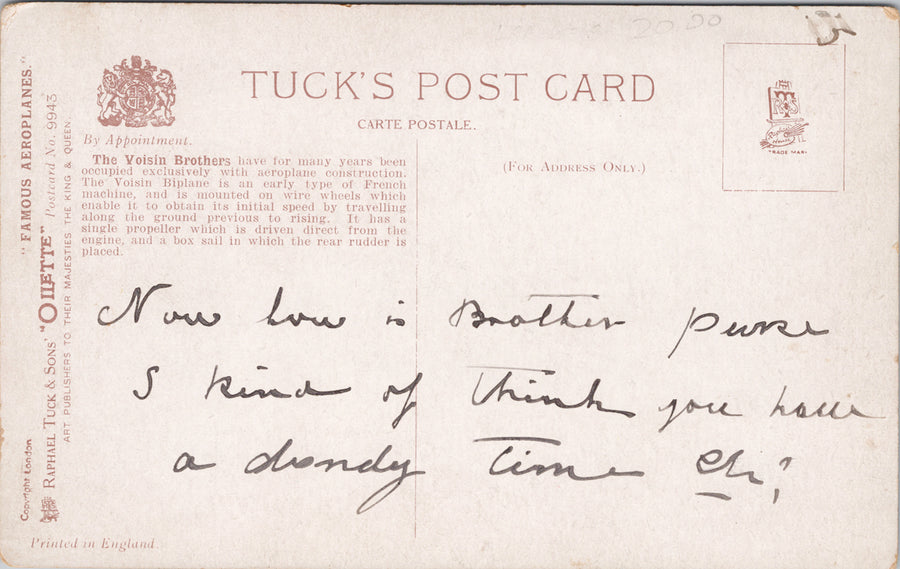 20.00
TUCK'S POST CARD
CARTE POSTALE.
(FOR ADDRESS ONLY.)
TRADE MARK
By Appointment.
The Voisin Brothers have for many years been
occupied exclusively with aeroplane construction.
The Voisin Biplane is an early type of French
machine, and is mounted on wire wheels which
enable it to obtain its initial speed by travelling
along the ground previous to rising. It has a
single propeller which is driven direct from the
engine, and a box sail in which the rear rudder is
placed.
Now how is Brother
I kind of think you have
a dandy time Eh?
"FAMOUS AEROPLANES."
RAPHAEL TUCK & SONS' "OILETTE" Postcard No. 9943
ART PUBLISHERS TO THEIR MAJESTIES THE KING & QUEEN.
Copyright London
Printed in England.